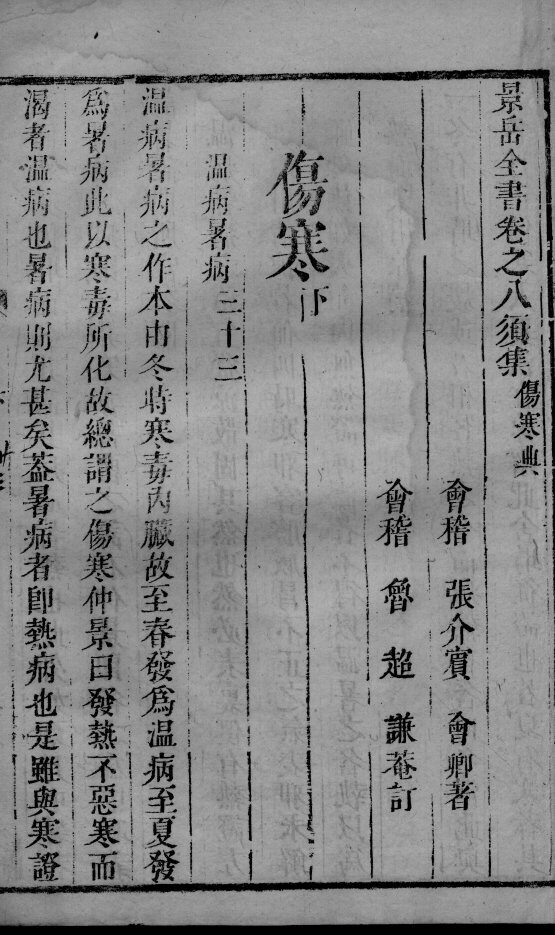 景岳全書卷之八須集 傷寒典
會稽 張介賓 會卿著
會稽 魯超 謙菴訂
傷寒下
溫病暑病 三十三
溫病暑病之作本由冬時寒毒內臟故至春發爲溫病至夏發
爲暑病此以寒毒所化故總謂之傷寒仲景曰發熱不惡寒而
渴者溫病也暑病則尤甚矣葢暑病者卽熱病也是雖與寒證